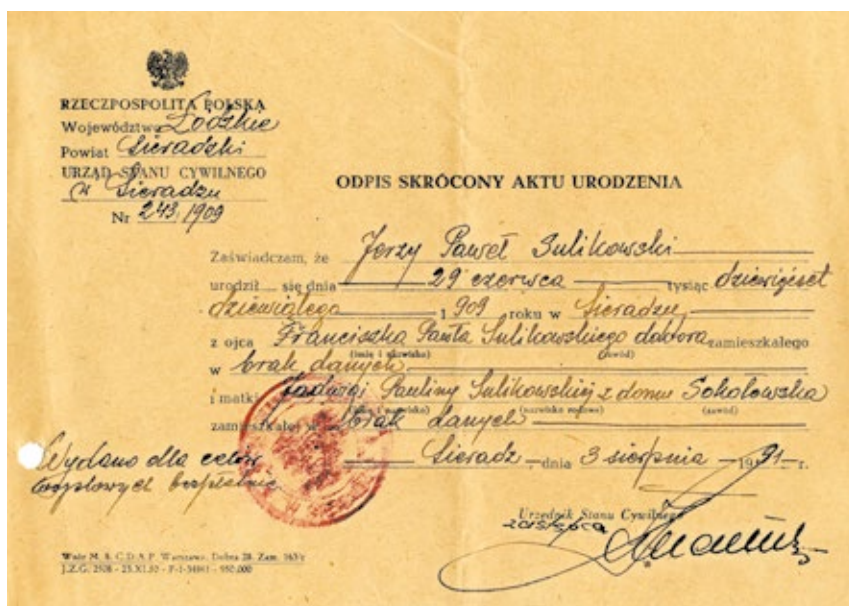 RZECZPOSPOLITA POLSKA
Województwo Łódzkie
Powiat Sieradzki
URZĄD STANU CYWILNEGO
w Sieradzu
Nr 243/1909
ODPIS SKRÓCONY AKTU URODZENIA
Zaświadczam, że Jerzy Paweł Sulikowski
urodził się dnia 29 czerwca tysiąc dziewięćset
dziewiątego 1909 roku w Sieradzu,
z ojca Franciszka Pawła Sulikowskiego doktora zamieszkałego
(imię i nazwisko) (zawód)
w brak danych
i matki Jadwigi Pauliny Sulikowskiej z domu Sokołowska
(nazwisko rodowe) (zawód)
zamieszkałej w brak danych
Wydano dla celów
bezpłatnie
Sieradz, dnia 3 sierpnia 1951 r.
Urzędnik Stanu Cywilnego
zastępca